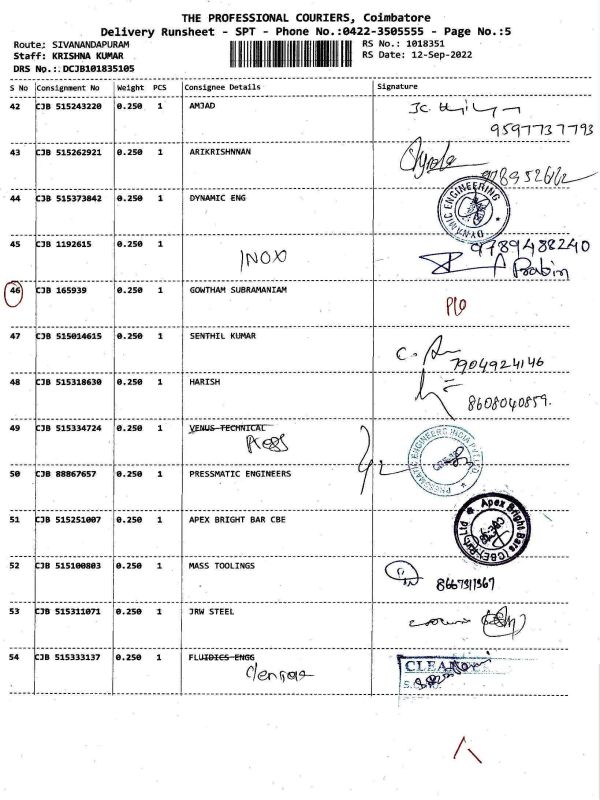 THE PROFESSIONAL COURIERS, Coimbatore
Delivery Runsheet - SPT - Phone No.:0422-3505555 - Page No.:5
Route: SIVANANDAPURAM
Staff: KRISHNA KUMAR
DRS No.:DCJB101835105
RS No.: 1018351
RS Date: 12-Sep-2022
S No Consignment No Weight PCS Consignee Details Signature
42 CJB 515243220 0.250 1 AMJAD
9597737793
43 CJB 515262921 0.250 1 ARIKRISHNNAN
44 CJB 515373842 0.250 1 DYNAMIC ENG
DYNAMIC ENGINEERING
45 CJB 1192615 0.250 1 INOX
9789488240
Prabin
46 CJB 165939 0.250 1 GOWTHAM SUBRAMANIAM
47 CJB 515014615 0.250 1 SENTHIL KUMAR
7904924146
48 CJB 515318630 0.250 1 HARISH
8608040859.
49 CJB 515334724 0.250 1 VENUS TECHNICAL
50 CJB 88867657 0.250 1 PRESSMATIC ENGINEERS
PRESSMATIC ENGINEERS INDIA PVT LTD
51 CJB 515251007 0.250 1 APEX BRIGHT BAR CBE
Apex Bright Bars (CBE) Ltd
52 CJB 515100803 0.250 1 MASS TOOLINGS
53 CJB 515311071 0.250 1 JRW STEEL
54 CJB 515333137 0.250 1 FLUIDICS ENGG